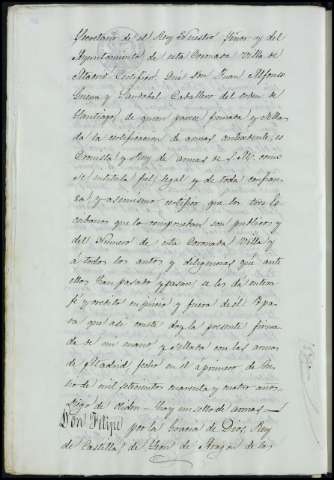 Secretario de el Rey Nuestro Señor y del
Ayuntamiento de esta Coronada Villa de
Madrid Certifico: Que Don Juan Alfonso
Guerra y Sandobal Caballero del orden de
Santiago, de quien parece firmada y sella-
da la certificacion de armas antecedente, es
Cronista y Rey de armas de S. M. como
se intitula fiel legal y de toda confian-
za y asimismo certifico que los tres Es-
cribanos que la comprueban son publicos y
del Numero de esta Coronada Villa y
á todos los autos y diligencias que ante
ellos han pasado y pasan se les da entera
fé y credito en juicio y fuera de el Y pa-
ra que asi conste doy la presente firma-
da de mi mano y sellada con las armas
de Madrid fecho en el a primero de
de mil setecientos cuarenta y cuatro años
Hay un sello de armas
Don Felipe por la Gracia de Dios, Rey
de Castilla, de Leon de Aragon de las